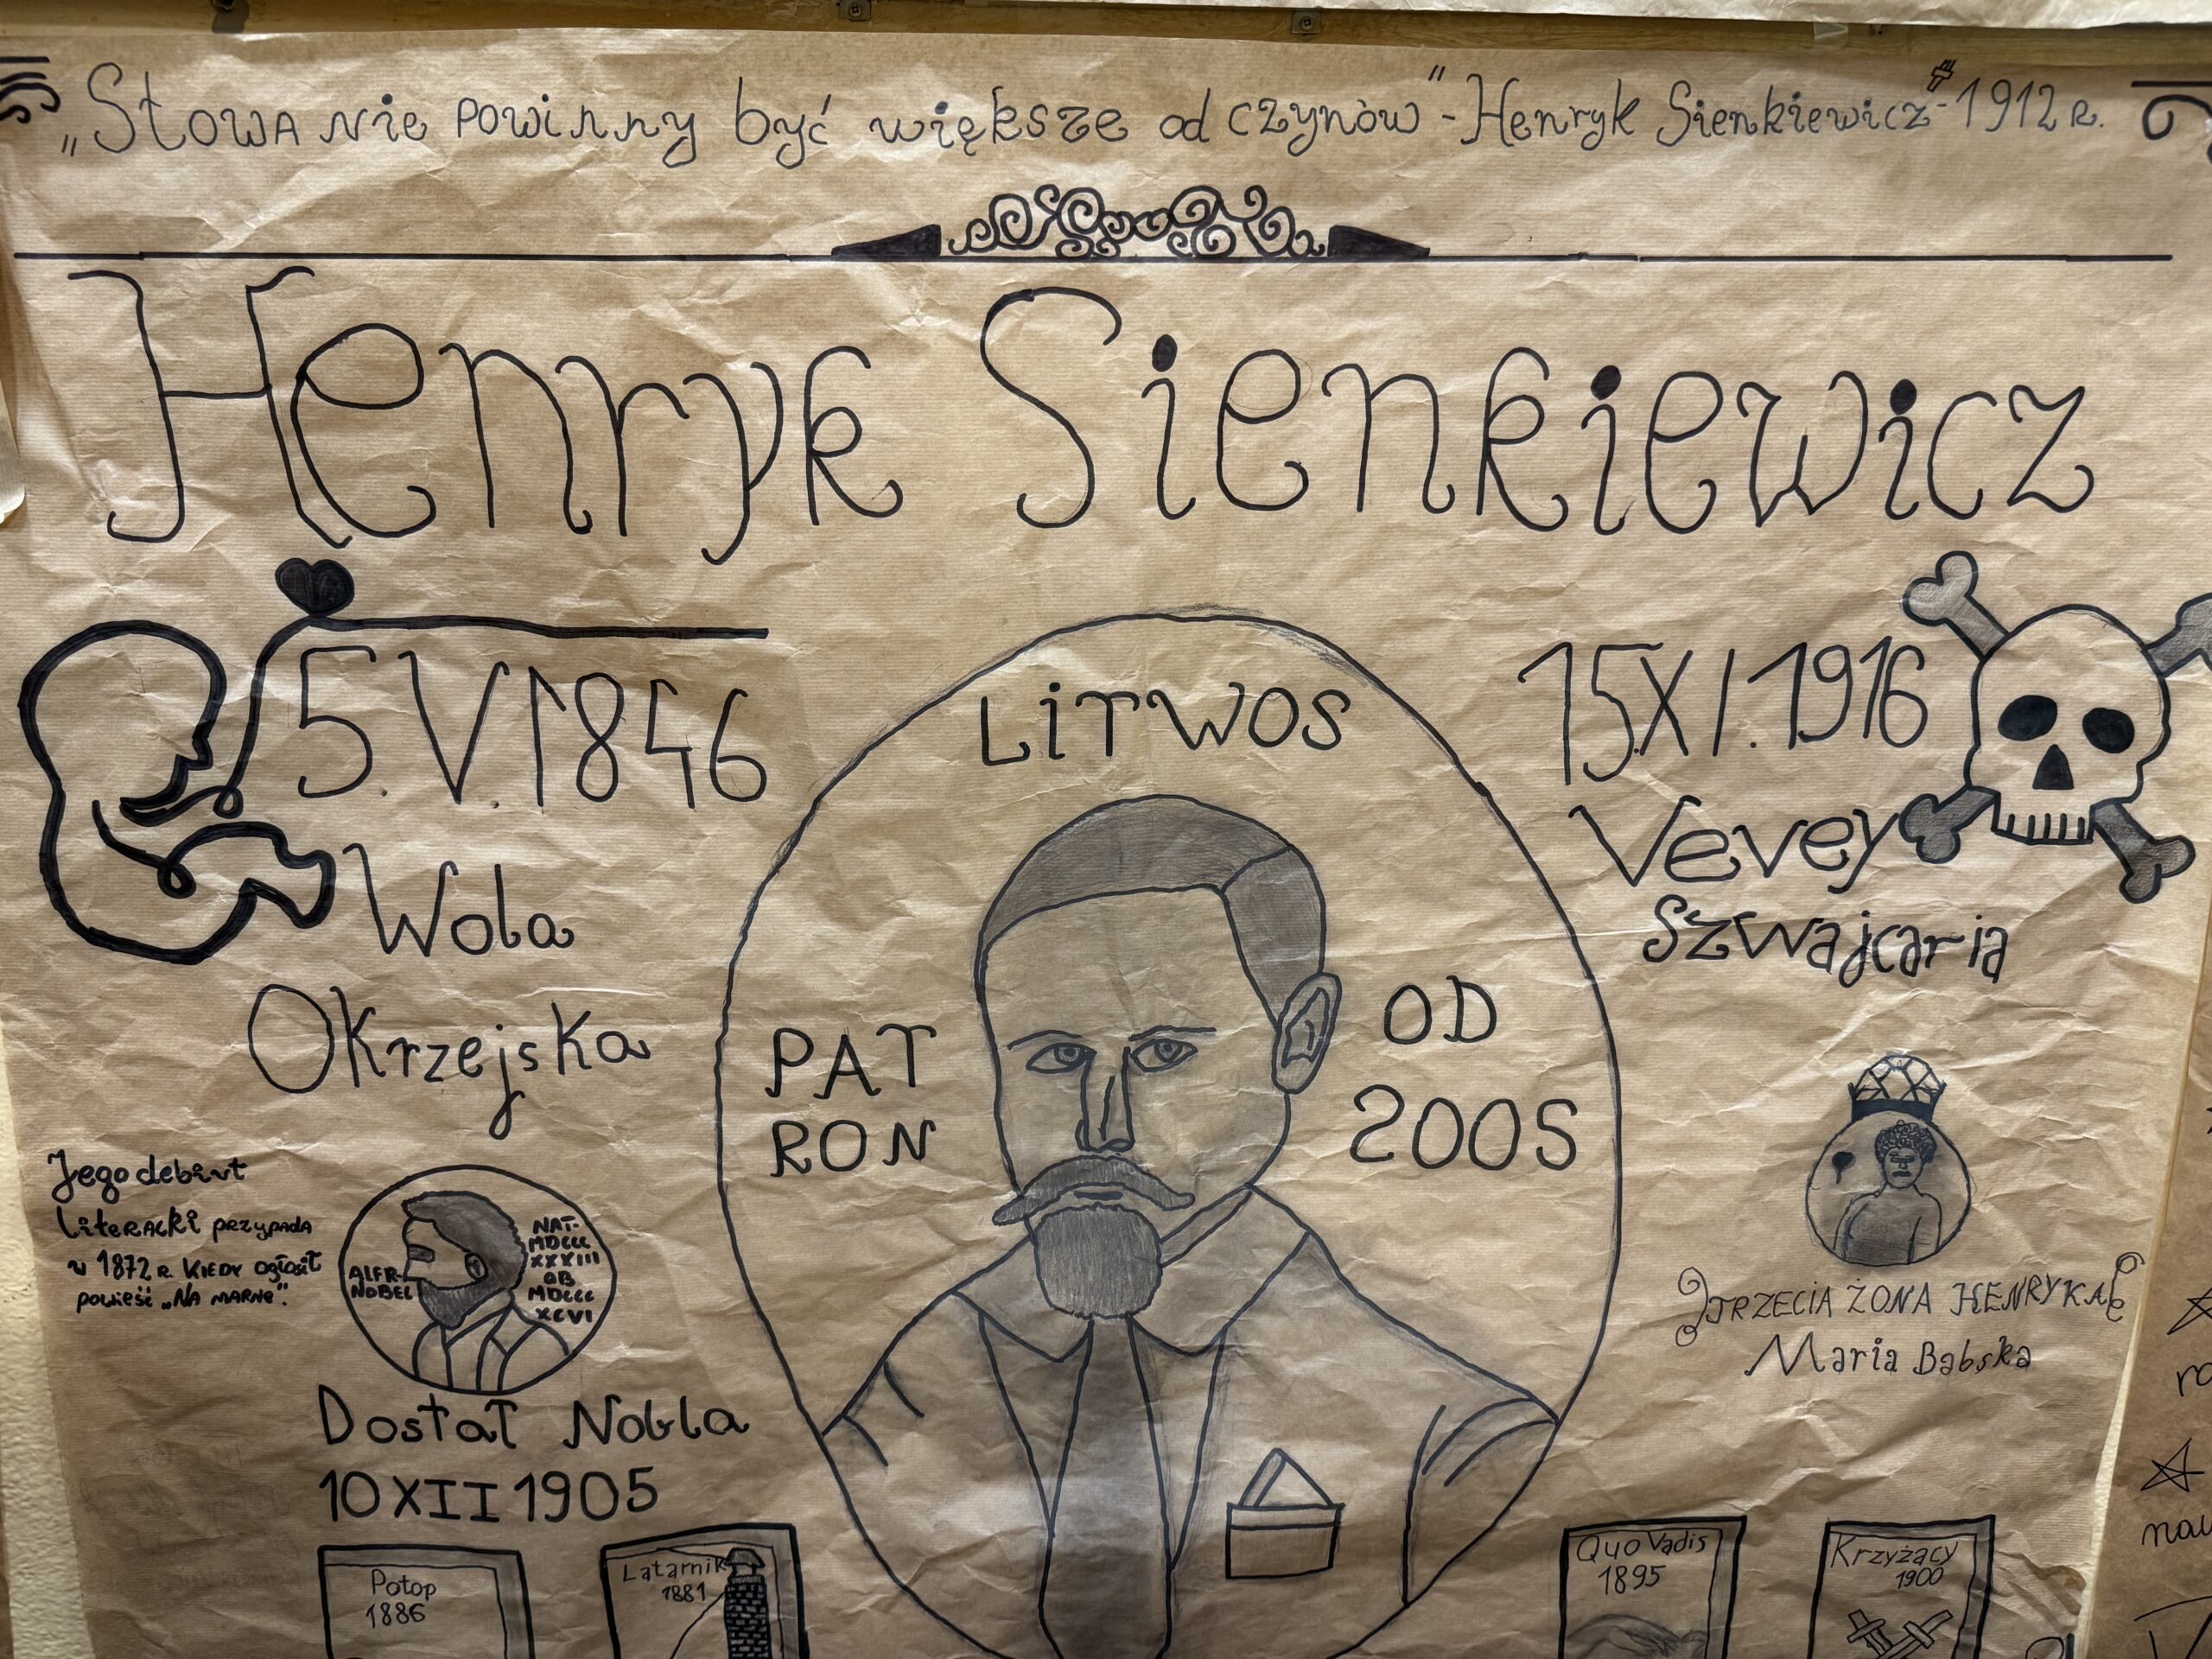 „Słowa nie powinny być większe od czynów" - Henryk Sienkiewicz - 1912 r.
Henryk Sienkiewicz
5.V.1846
Wola
Okrzejska
LiTWOS
PAT
RON
OD
2005
15.XI.1916
Vevey
Szwajcaria
Jego debiut
literacki przypada
w 1872 r. kiedy ogłosił
powieść „Na marne".
ALFR-
NOBEL
NAT-
MDCCC
XXXIII
OB
MDCCC
XCVI
Dostał Nobla
10 XII 1905
TRZECIA ŻONA HENRYKA
Maria Babska
Potop
1886
Latarnik
1881
Quo Vadis
1895
Krzyżacy
1900